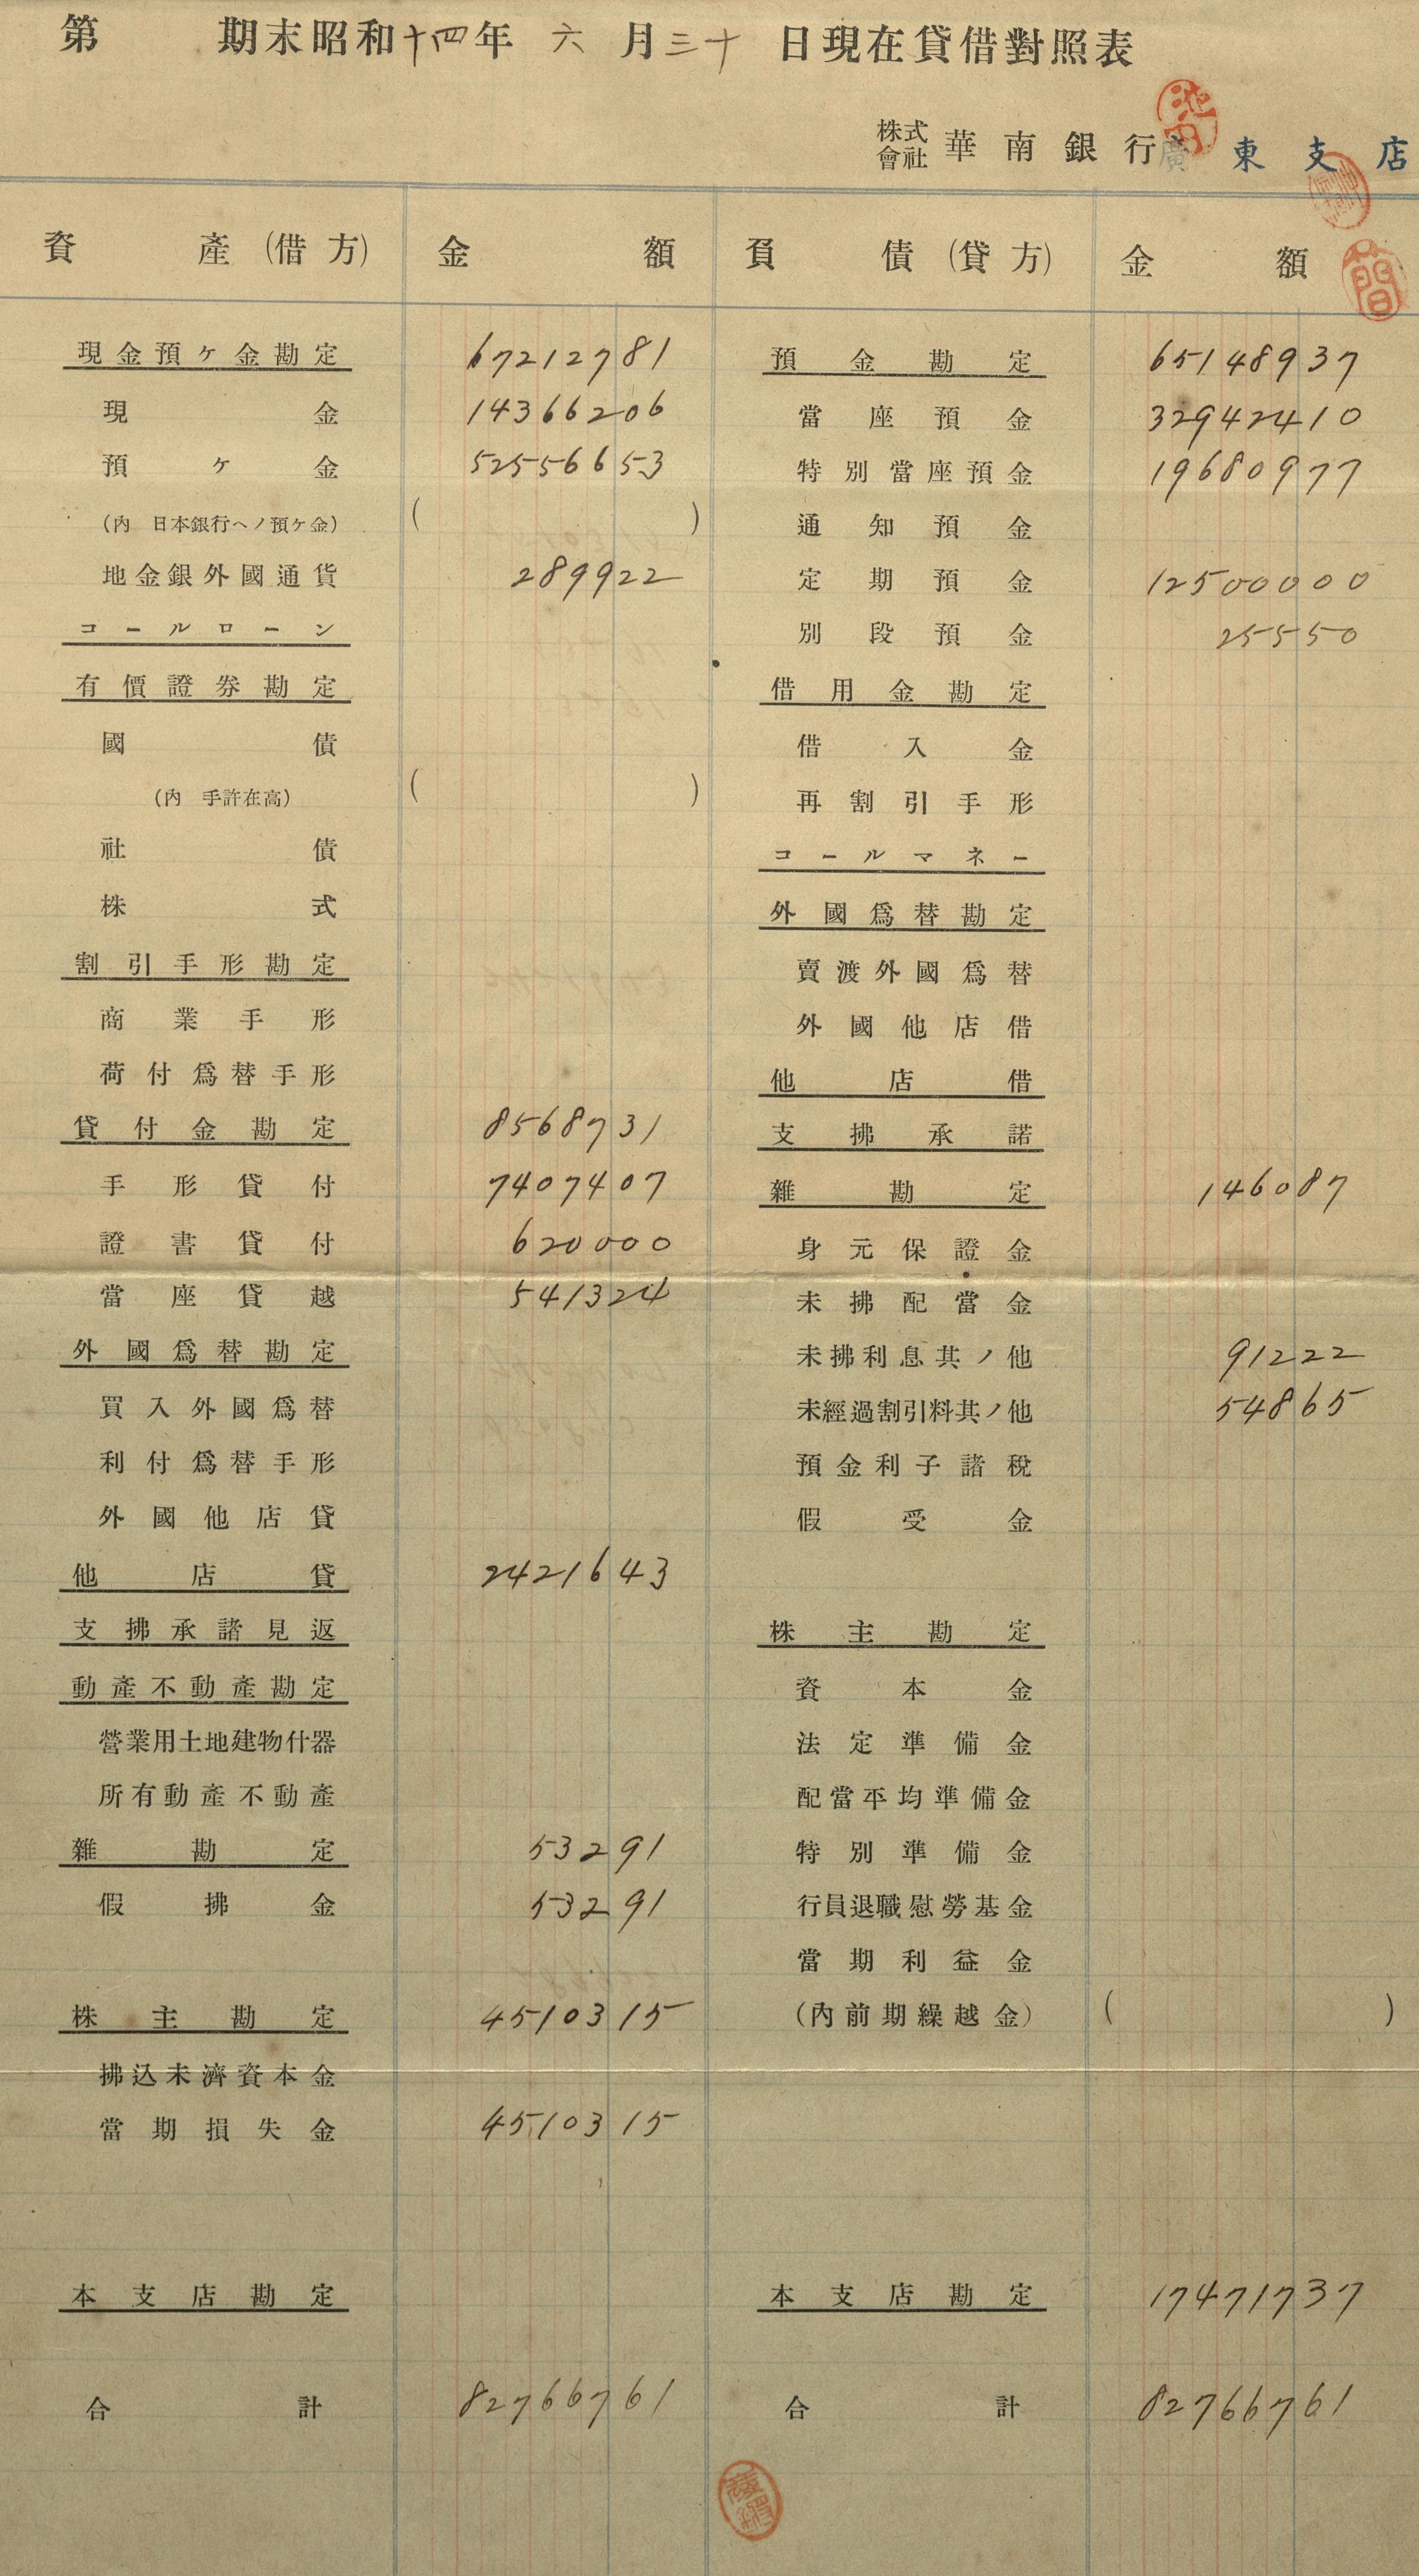 第 期末昭和十四年 六 月三十 日現在貸借對照表
株式會社 華南銀行廣東支店
資產(借方) 金額 負債(貸方) 金額
現金預ケ金勘定 67212781 預金勘定 65148937
現金 14366206 當座預金 32942410
預ケ金 52556653 特別當座預金 19680977
(內 日本銀行ヘノ預ケ金) ( ) 通知預金
地金銀外國通貨 289922 定期預金 12500000
コールローン 別段預金 25550
有價證券勘定 借用金勘定
國債 借入金
(內 手許在高) ( ) 再割引手形
社債 コールマネー
株式 外國爲替勘定
割引手形勘定 賣渡外國爲替
商業手形 外國他店借
荷付爲替手形 他店借
貸付金勘定 8568731 支拂承諾
手形貸付 7407407 雜勘定 146087
證書貸付 620000 身元保證金
當座貸越 541324 未拂配當金
外國爲替勘定 未拂利息其ノ他 91222
買入外國爲替 未經過割引料其ノ他 54865
利付爲替手形 預金利子諸稅
外國他店貸 假受金
他店貸 2421643
支拂承諸見返 株主勘定
動產不動產勘定 資本金
營業用土地建物什器 法定準備金
所有動產不動產 配當平均準備金
雜勘定 53291 特別準備金
假拂金 53291 行員退職慰勞基金
當期利益金
株主勘定 4510315 (內前期繰越金) ( )
拂込未濟資本金
當期損失金 4510315
本支店勘定 本支店勘定 17471737
合計 82766761 合計 82766761